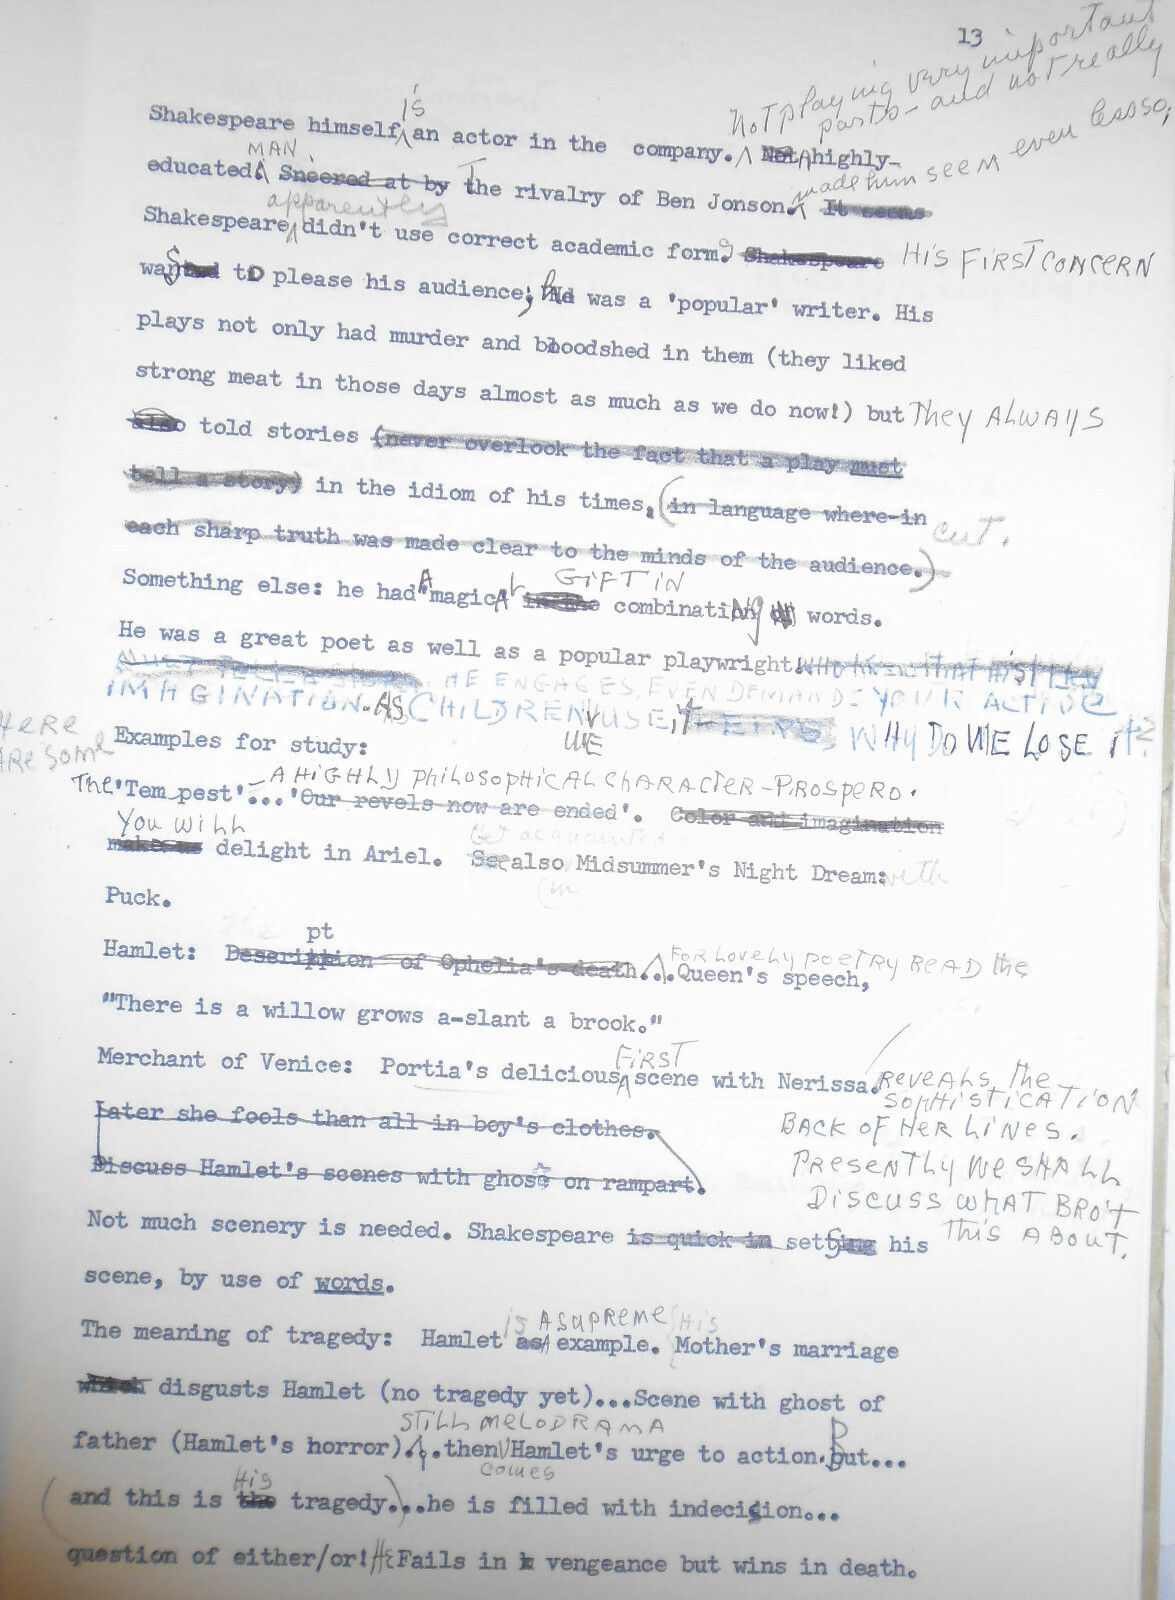 13
Not playing very important
parts - and not really
Shakespeare himself is an actor in the company. Not highly-
educated MAN. Sneered at by The rivalry of Ben Jonson. made him seem even less so; It seems
Shakespeare apparently didn't use correct academic form. Shakespeare HIS FIRST CONCERN
waS to please his audience; he was a 'popular' writer. His
plays not only had murder and bloodshed in them (they liked
strong meat in those days almost as much as we do now!) but They ALWAYS
also told stories (never overlook the fact that a play must
tell a story) in the idiom of his times, (in language where-in
each sharp truth was made clear to the minds of the audience.) cut.
Something else: he had A magical in the GIFT IN combinating of words.
He was a great poet as well as a popular playwright. WHO KNEW THAT HIS PLAY
MUST TELL A STORY. HE ENGAGES EVEN DEMANDS YOUR ACTIVE
IMAGINATION. AS CHILDREN WE USE IT WHY DO WE LOSE iT?
Here are some
Examples for study:
The 'Tempest'... - A HIGHLY PHILOSOPHICAL CHARACTER - PROSPERO. 'Our revels now are ended'. Color and imagination
You will makes us delight in Ariel. Get acquainted See also Midsummer's Night Dream: with
(in
Puck.
Hamlet: Description of Ophelia's death... FOR LOVELY POETRY READ the Queen's speech,
"There is a willow grows a-slant a brook."
Merchant of Venice: Portia's delicious FIRST scene with Nerissa. Reveals the
SOPHISTICATION
BACK OF HER LINES.
PRESENTLY WE SHALL
DISCUSS WHAT BRO'T
THIS ABOUT.
Later she fools than all in boy's clothes.
Discuss Hamlet's scenes with ghost on rampart.
Not much scenery is needed. Shakespeare is quick in setS his
scene, by use of words.
The meaning of tragedy: Hamlet is A SUPREME as example. HIS Mother's marriage
which disgusts Hamlet (no tragedy yet)...Scene with ghost of
father (Hamlet's horror)... STILL MELODRAMA then comes Hamlet's urge to action. But...
(and this is the His tragedy)...he is filled with indecision...
question of either/or! He Fails in vengeance but wins in death.